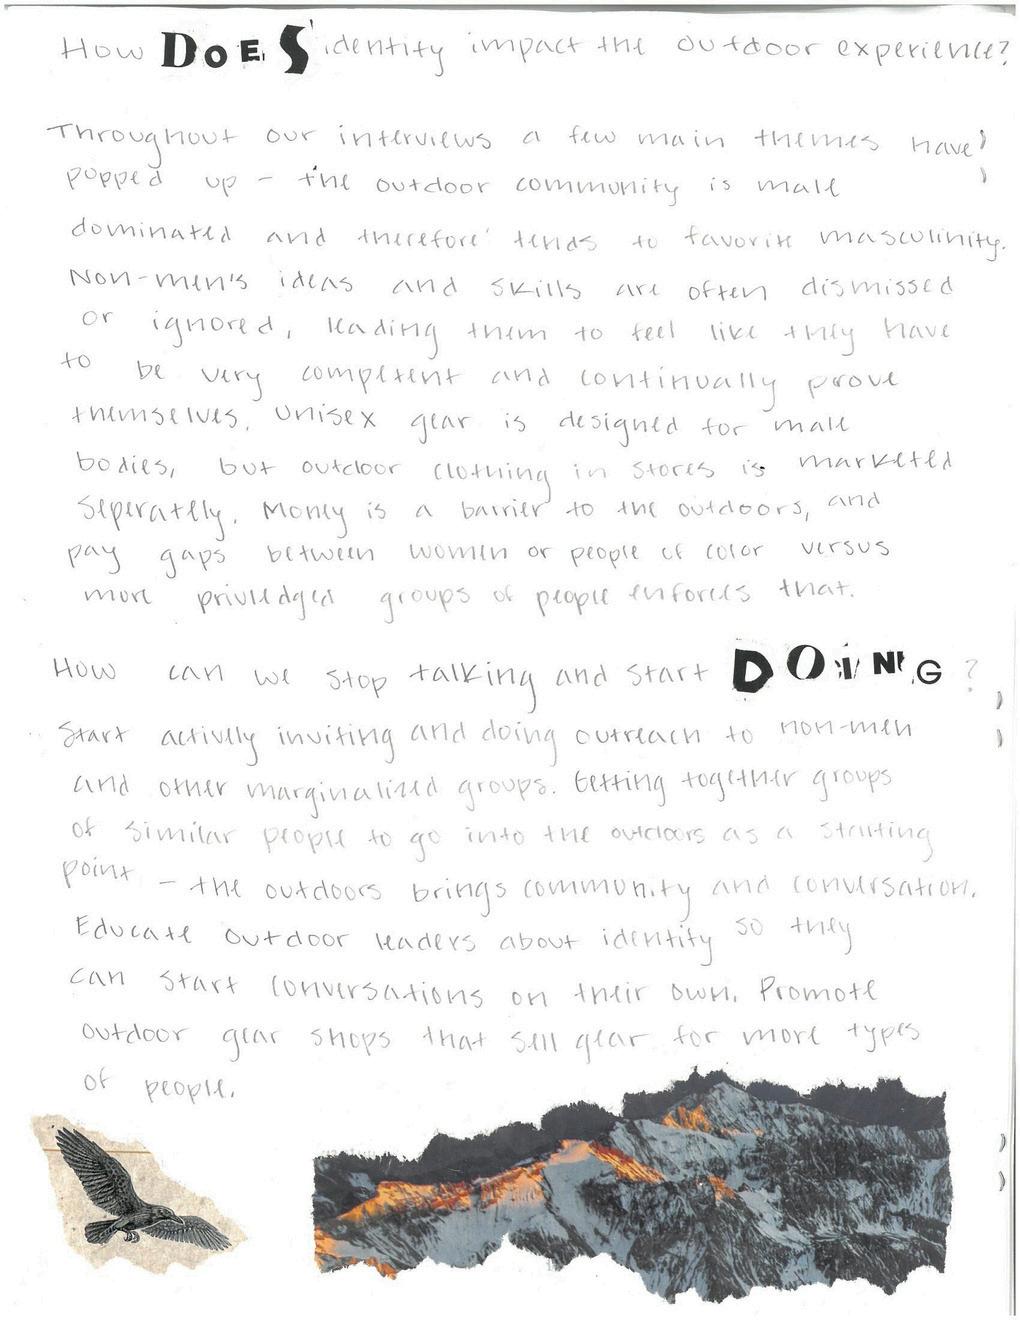 How DOES identity impact the outdoor experience?
Throughout our interviews a few main themes have
popped up – the outdoor community is male
dominated and therefore tends to favorite masculinity.
Non-men's ideas and skills are often dismissed
or ignored, leading them to feel like they have
to be very competent and continually prove
themselves. Unisex gear is designed for male
bodies, but outdoor clothing in stores is marketed
seperatly. Money is a barrier to the outdoors, and
pay gaps between women or people of color versus
more priviledged groups of people enforces that.
How can we stop talking and start DOiNG?
Start activly inviting and doing outreach to non-men
and other marginalized groups. Getting together groups
of similar people to go into the outdoors as a starting
point – the outdoors brings community and conversation.
Educate outdoor leaders about identity so they
can start conversations on their own. Promote
outdoor gear shops that sell gear for more types
of people.